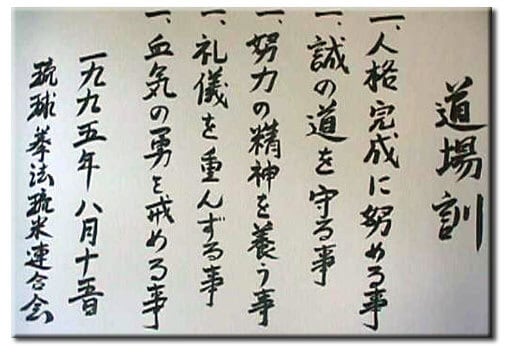 道場訓
一、人格完成に努める事
一、誠の道を守る事
一、努力の精神を養う事
一、礼儀を重んずる事
一、血気の勇を戒める事
一九九五年八月十五日
琉球拳法琉米連合会